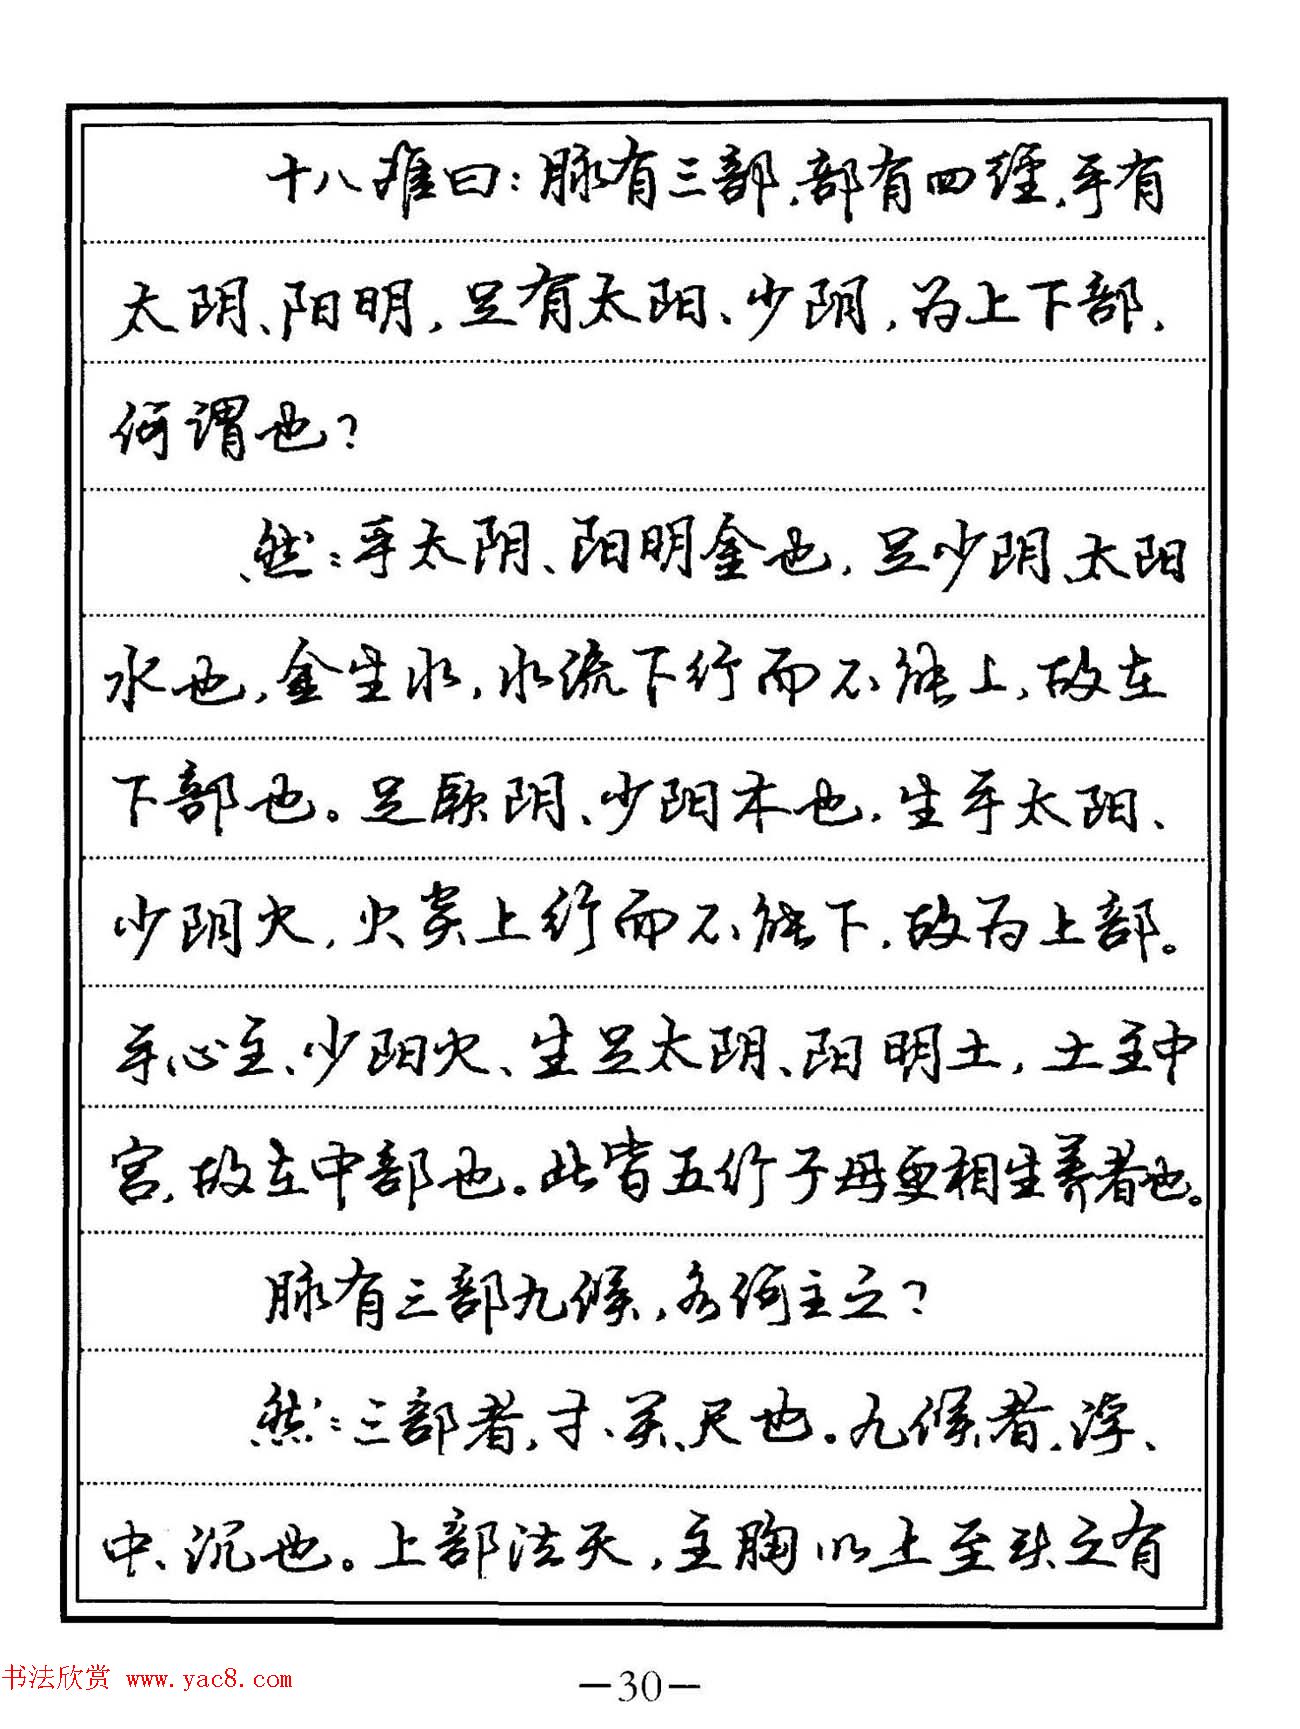 十八难曰：脉有三部，部有四经，手有
太阴、阳明，足有太阳、少阴，为上下部，
何谓也？
然：手太阴、阳明金也，足少阴、太阳
水也，金生水，水流下行而不能上，故在
下部也。足厥阴、少阳木也，生手太阳、
少阴火，火炎上行而不能下，故为上部。
手心主、少阳火、生足太阴、阳明土，土主中
宫，故在中部也。此皆五行子母更相生养者也。
脉有三部九候，各何主之？
然：三部者，寸、关、尺也。九候者，浮、
中、沉也。上部法天，主胸以上至头之有
书法欣赏 www.yac8.com
—30—